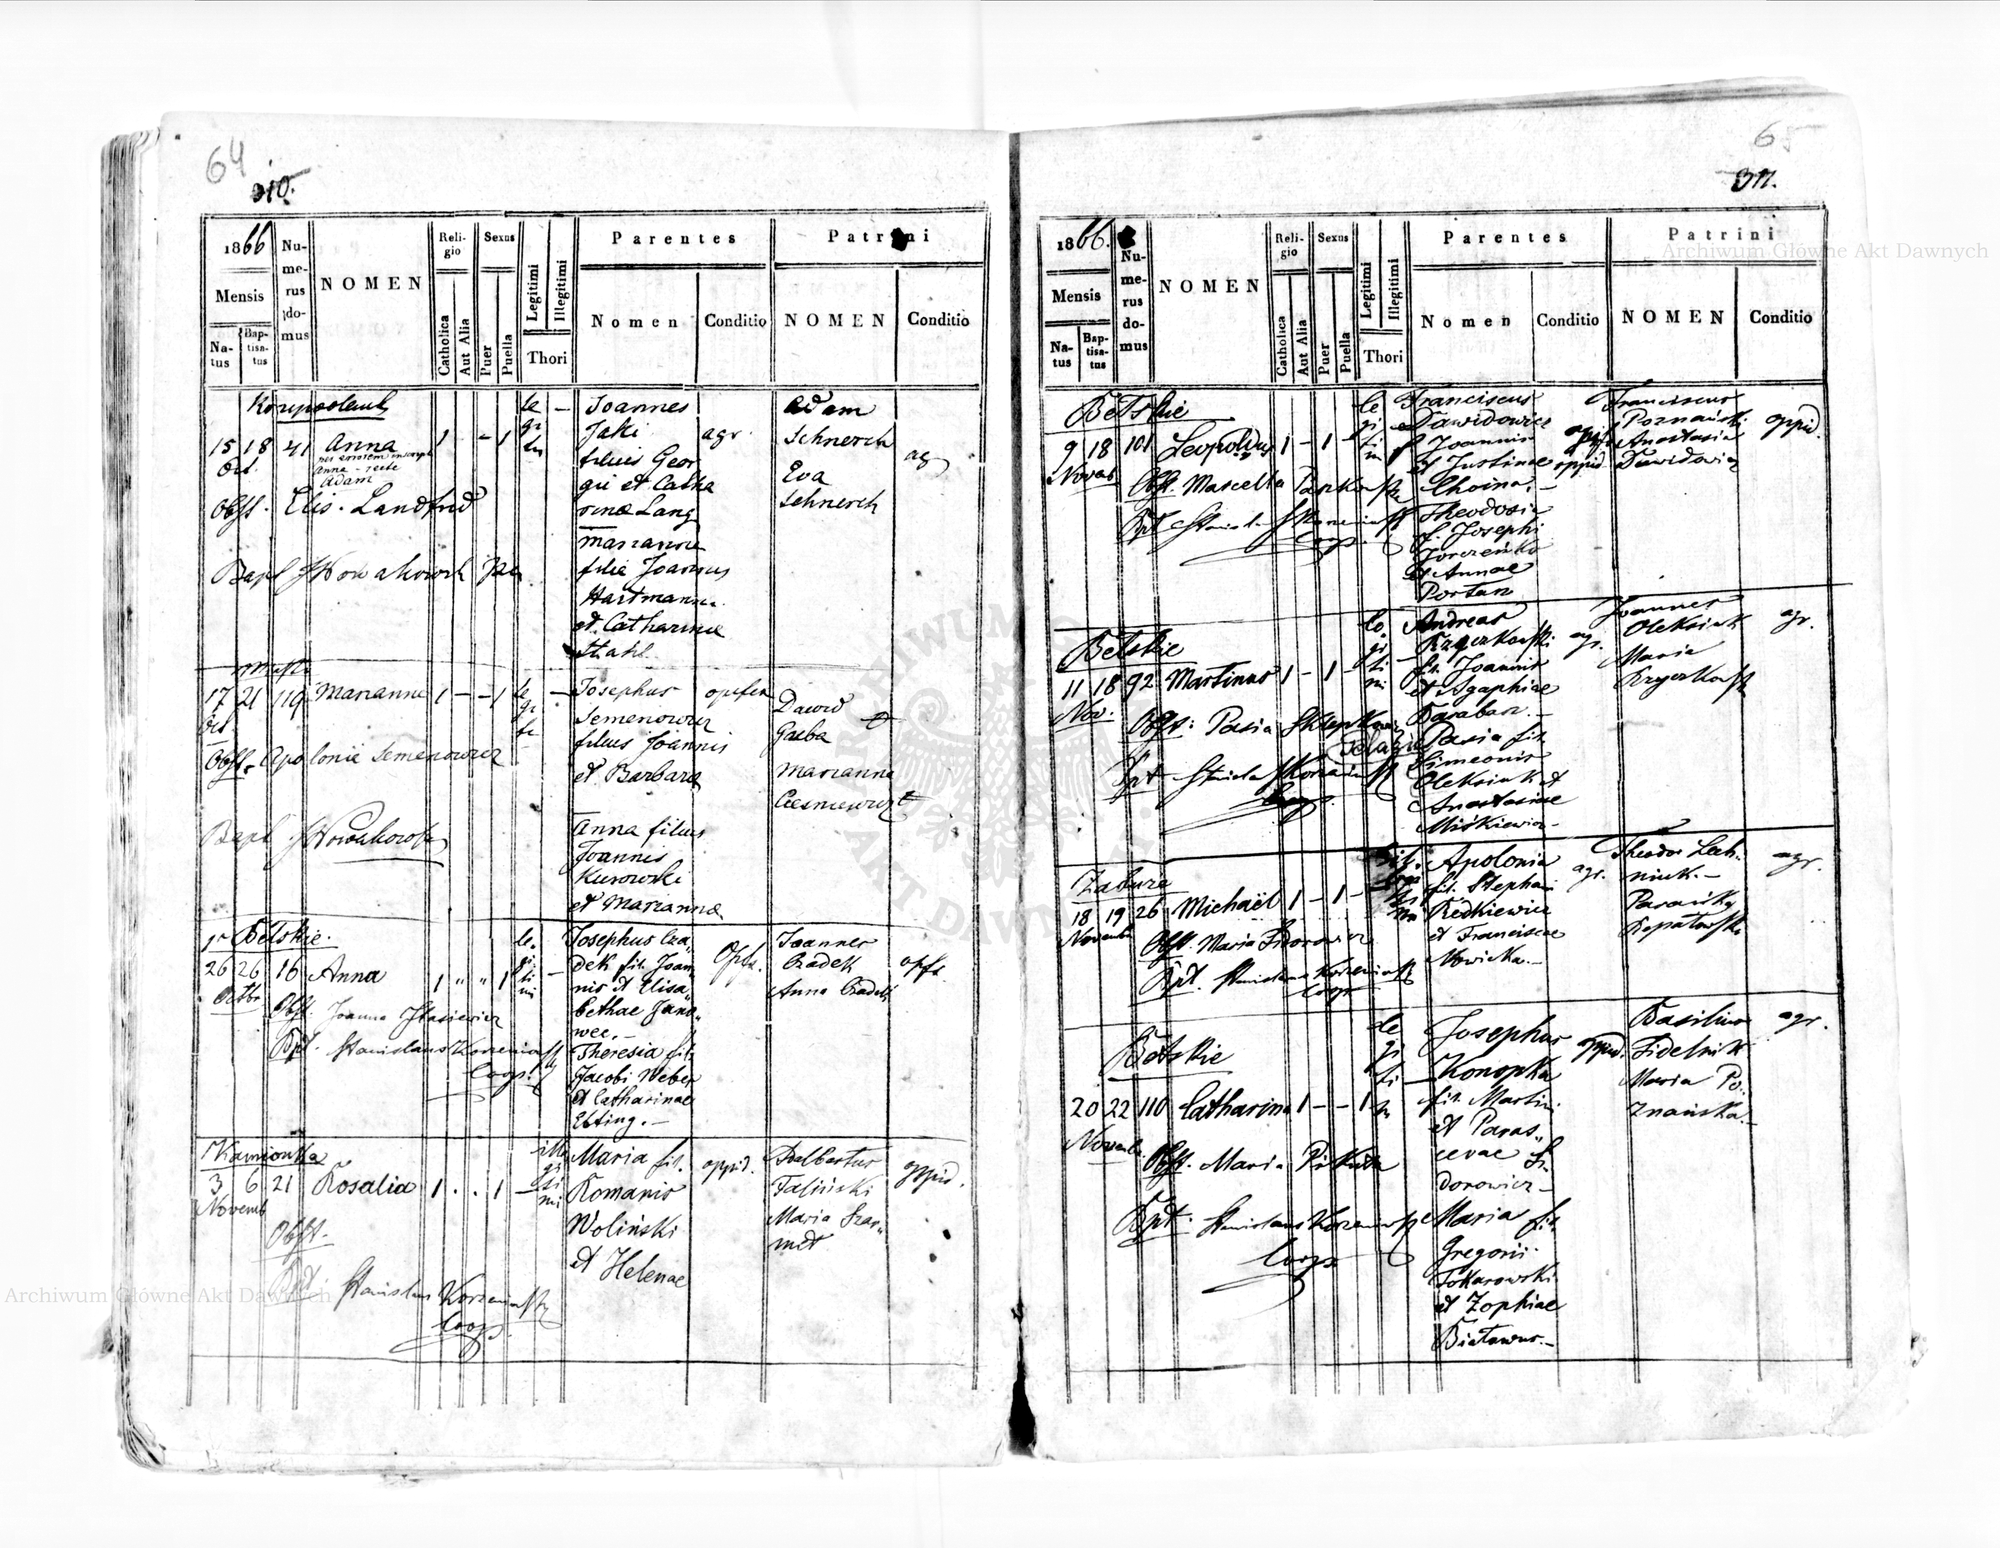 64
310.
1866
Mensis
Na-
tus
Bap-
tisa-
tus
Nu-
me-
rus
do-
mus
NOMEN
Reli-
gio
Catholica
Aut Alia
Sexus
Puer
Puella
Legitimi
Illegitimi
Thori
Parentes
Nomen
Conditio
Patrini
NOMEN
Conditio
15 18 41 Anna 1 - - 1
Oct.
Anna - recte
Adam
Obst. Elis. Landfrid
le
gi
Joannes
Jaki
filius Geor
gii et Catha
rinæ Lang
Marianne
filia Joannis
Hartmann
et Catharinæ
Stahl
agr.
Adam
Schnerch
Eva
Schnerch
ag
17 21 119 Marianne 1 - - 1
Oct.
Obst. Apolonie Semenowicz
Bapt. Nowakowski
le
gi
Josephus
Semenowicz
filius Joannis
et Barbara
Anna filius
Joannis
Kurowski
et Marianna
opifex
Dawid
Gaeba
Marianna
Bełskie.
26 26 16 Anna 1 " " 1
Octbr
Obst. Joanna Stasiewicz
Bpt. Stanislaus Korzeniowski
Coop.
le.
gi.
ti
mi
Josephus Cza„
dek fil. Joan„
nis et Elisa„
bethae Jano„
wec. -
Theresia fil.
Jacobi Weber
et Catharinae
Ebting. -
Opfx.
Joannes
Czadek
Anna Czadek
opfx
Kamionka
3 6 21 Rosalia 1 . . 1
Novemb
Obst.
Bpt. Stanislaus Korzeniowski
Coop.
ille
gi
ti
mi
Maria fil.
Romanis
Woliński
et Helenae
oppid.
Adalbertus
Faliński
Maria Szar„
met
oppid.
65
311.
1866.
Mensis
Na-
tus
Bap-
tisa-
tus
Nu-
me-
rus
do-
mus
NOMEN
Reli-
gio
Catholica
Aut Alia
Sexus
Puer
Puella
Legitimi
Illegitimi
Thori
Parentes
Nomen
Conditio
Patrini
NOMEN
Conditio
Bełskie
9 18 101 Leopoldus 1 - 1 -
Novemb
Obst. Marcella
Bpt. Stanislaus Korzeniowski
Coop.
le
gi
ti
m
Franciscus
Dawidowicz
f. Joannis
et Justinae
Choina. -
Theodosia
f. Josephi
et Annae
oppid.
Franciscus
Poznański
Anastasia
Dawidowicz
oppid.
Bełskie
11 18 92 Martinus 1 - 1 -
Nov.
Obst: Pasia
Bpt. Stanislaus Korzeniowski
Coop.
le.
gi
ti
mi
Andreas
Kryczkowski
fil. Joannis
et Agaphiae
Barabasz. -
Pasia fil.
Simeonis
Oleksiuk et
Anastasiae
Miśkiewicz. -
agr.
Joannes
Oleksiuk
Maria
Kryczkowska
agr.
Zaburze
18 19 26 Michaël 1 - 1 -
Novemb
Obst. Maria Fidorowicz
Bpt. Stanislaus Korzeniowski
Coop
Apolonia
fil. Stephani
Redkiewicz
et Franciscae
Nowicka. -
agr.
Theodor Lech-
niuk. -
agr.
Bełskie
20 22 110 Catharina 1 - - 1
Novemb.
Obst. Maria
Bpt. Stanislaus Korzeniowski
Coop.
le
gi
ti
Josephus
Konopka
fil. Martini
et Paras„
cevae Fi„
dorowicz -
Maria fil.
Gregorii
Tokarowski
et Zophiae
oppid.
Basilius
Fidelnik
Maria Po„
znańska. -
agr.
Archiwum Główne Akt Dawnych
Archiwum Główne Akt Dawnych
ARCHIWUM
AKT DAWNYCH